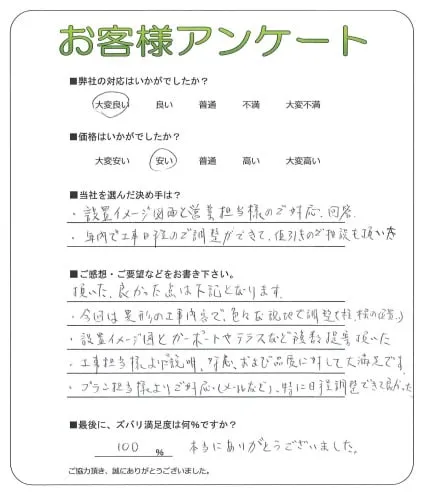 お客様アンケート
■弊社の対応はいかがでしたか？
大変良い 良い 普通 不満 大変不満
■価格はいかがでしたか？
大変安い 安い 普通 高い 大変高い
■当社を選んだ決め手は？
・設置イメージ図面と営業担当様のご対応、回答。
・年内で工事日程のご調整ができて、値引きのご相談も頂いた
■ご感想・ご要望などをお書き下さい。
頂いた、良かった点は下記となります。
・今回は異形の工事内容で、色々な現地で調整
・設置イメージ図とカーポートやテラスなど複数提案頂いた
・工事担当様より説明、対応、および品質に対して大満足です。
・プラン担当様よりご対応(メールなど)、特に日程調整できて良かった
■最後に、ズバリ満足度は何％ですか？
100 % 本当にありがとうございました。
ご協力頂き、誠にありがとうございました。